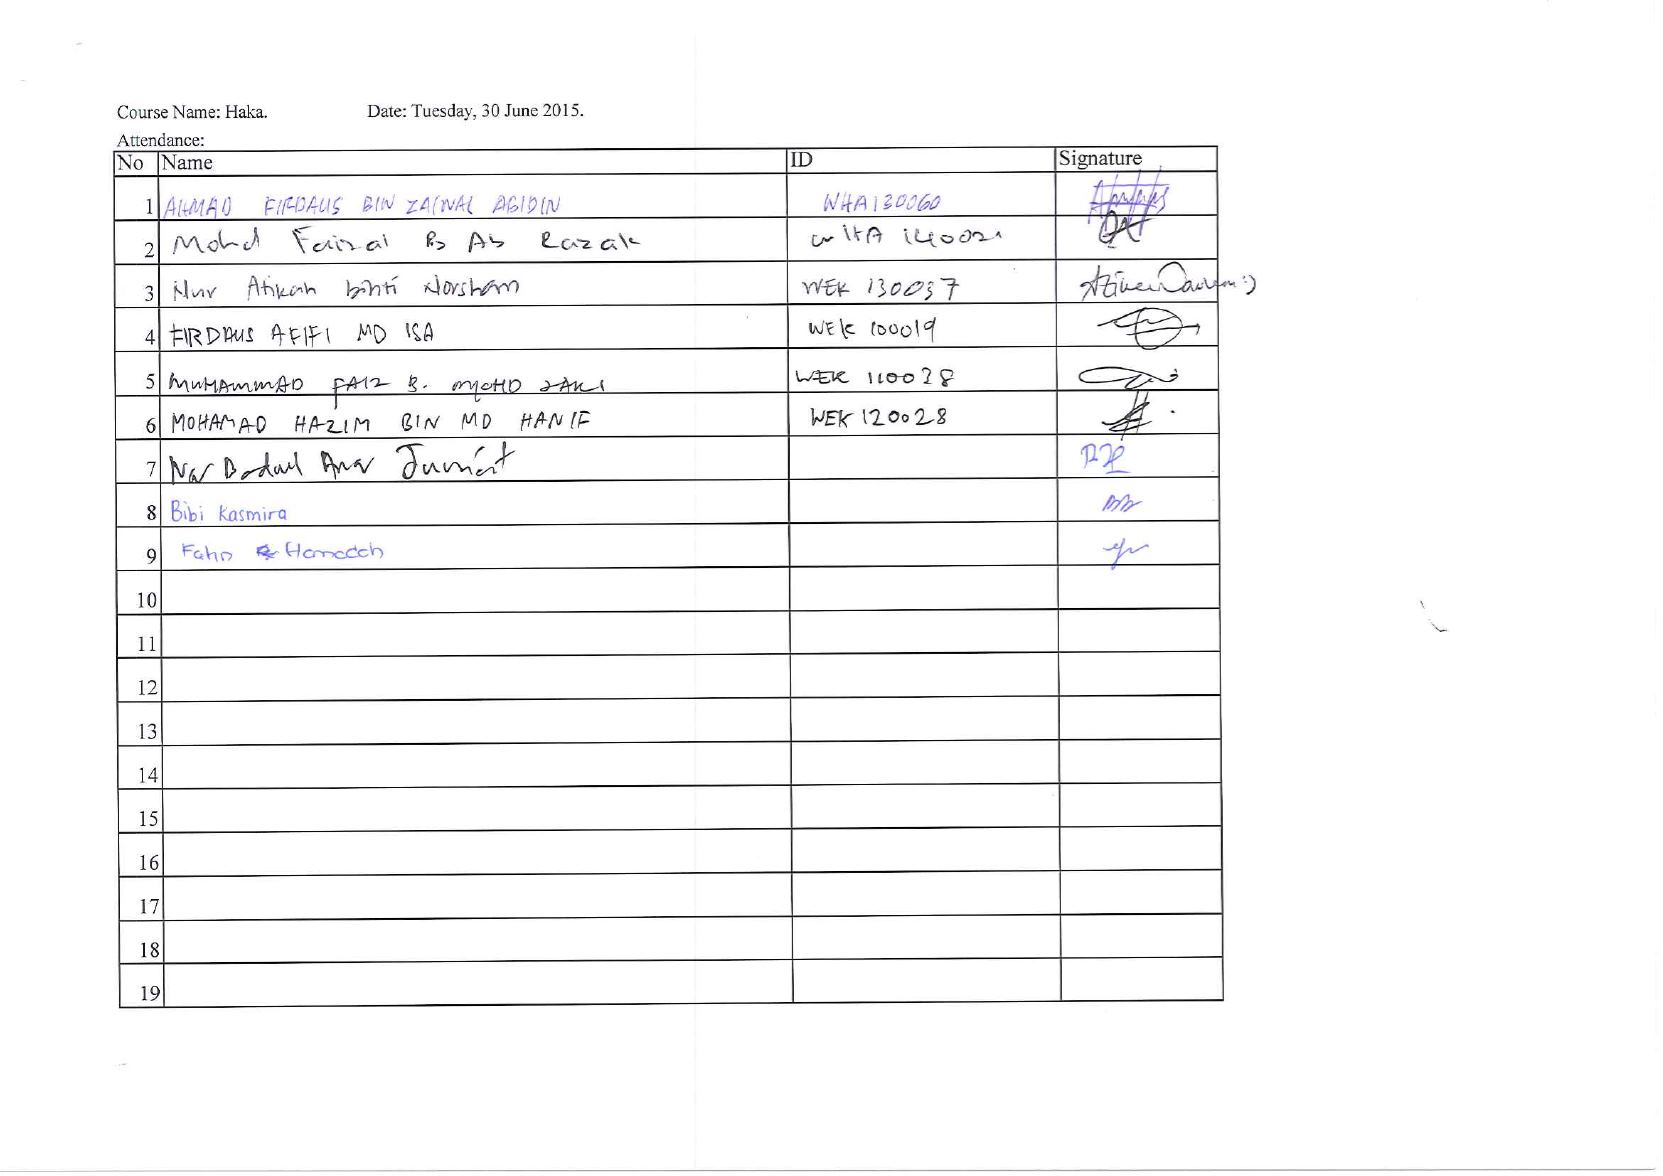 Course Name: Haka. Date: Tuesday, 30 June 2015.
Attendance:
No Name ID Signature
1 AHMAD FIRDAUS BIN ZAINAL ABIDIN WHA130060
2 Mohd Faizal B Ab Razak WHA 140021
3 Nur Atikah binti Norsham WEK 130037
4 FIRDAUS AFIFI MD ISA WEK 100019
5 MUHAMMAD FAIZ B. MOHD ZAKI WEK 110028
6 MOHAMAD HAZIM BIN MD HANIF WEK 120028
7 Jumáat
8 Bibi Kasmira
9 Hamadah
10
11
12
13
14
15
16
17
18
19